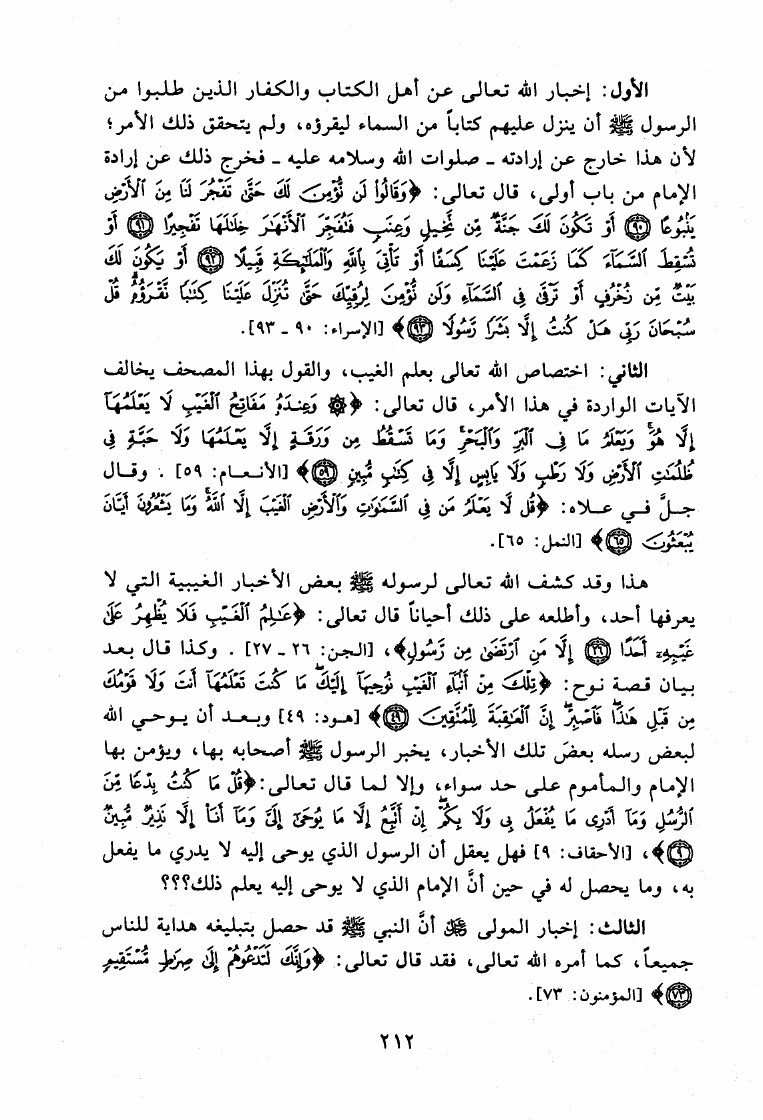 الأول: إخبار الله تعالى عن أهل الكتاب والكفار الذين طلبوا من
الرسول ﷺ أن ينزل عليهم كتاباً من السماء ليقرؤه، ولم يتحقق ذلك الأمر؛
لأن هذا خارج عن إرادته ـ صلوات الله وسلامه عليه ـ فخرج ذلك عن إرادة
الإمام من باب أولى، قال تعالى: ﴿وَقَالُوا۟ لَن نُّؤْمِنَ لَكَ حَتَّىٰ تَفْجُرَ لَنَا مِنَ ٱلْأَرْضِ
يَنۢبُوعًا ﴿٩٠﴾ أَوْ تَكُونَ لَكَ جَنَّةٌ مِّن نَّخِيلٍ وَعِنَبٍ فَتُفَجِّرَ ٱلْأَنْهَـٰرَ خِلَـٰلَهَا تَفْجِيرًا ﴿٩١﴾ أَوْ
تُسْقِطَ ٱلسَّمَآءَ كَمَا زَعَمْتَ عَلَيْنَا كِسَفًا أَوْ تَأْتِىَ بِٱللَّهِ وَٱلْمَلَـٰٓئِكَةِ قَبِيلًا ﴿٩٢﴾ أَوْ يَكُونَ لَكَ
بَيْتٌ مِّن زُخْرُفٍ أَوْ تَرْقَىٰ فِى ٱلسَّمَآءِ وَلَن نُّؤْمِنَ لِرُقِيِّكَ حَتَّىٰ تُنَزِّلَ عَلَيْنَا كِتَـٰبًا نَّقْرَؤُهُۥ قُلْ
سُبْحَانَ رَبِّى هَلْ كُنتُ إِلَّا بَشَرًا رَّسُولًا ﴿٩٣﴾﴾ [الإسراء: ٩٠ ـ ٩٣].
الثاني: اختصاص الله تعالى بعلم الغيب، والقول بهذا المصحف يخالف
الآيات الواردة في هذا الأمر، قال تعالى: ﴿۞ وَعِندَهُۥ مَفَاتِحُ ٱلْغَيْبِ لَا يَعْلَمُهَآ
إِلَّا هُوَ ۚ وَيَعْلَمُ مَا فِى ٱلْبَرِّ وَٱلْبَحْرِ ۚ وَمَا تَسْقُطُ مِن وَرَقَةٍ إِلَّا يَعْلَمُهَا وَلَا حَبَّةٍ فِى
ظُلُمَـٰتِ ٱلْأَرْضِ وَلَا رَطْبٍ وَلَا يَابِسٍ إِلَّا فِى كِتَـٰبٍ مُّبِينٍ ﴿٥٩﴾﴾ [الأنعام: ٥٩]. وقال
جلَّ في علاه: ﴿قُل لَّا يَعْلَمُ مَن فِى ٱلسَّمَـٰوَٰتِ وَٱلْأَرْضِ ٱلْغَيْبَ إِلَّا ٱللَّهُ ۚ وَمَا يَشْعُرُونَ أَيَّانَ
يُبْعَثُونَ ﴿٦٥﴾﴾ [النمل: ٦٥].
هذا وقد كشف الله تعالى لرسوله ﷺ بعض الأخبار الغيبية التي لا
يعرفها أحد، وأطلعه على ذلك أحياناً قال تعالى: ﴿عَـٰلِمُ ٱلْغَيْبِ فَلَا يُظْهِرُ عَلَىٰ
غَيْبِهِۦٓ أَحَدًا ﴿٢٦﴾ إِلَّا مَنِ ٱرْتَضَىٰ مِن رَّسُولٍ﴾، [الجن: ٢٦ ـ ٢٧]. وكذا قال بعد
بيان قصة نوح: ﴿تِلْكَ مِنْ أَنۢبَآءِ ٱلْغَيْبِ نُوحِيهَآ إِلَيْكَ ۖ مَا كُنتَ تَعْلَمُهَآ أَنتَ وَلَا قَوْمُكَ
مِن قَبْلِ هَـٰذَا ۖ فَٱصْبِرْ ۖ إِنَّ ٱلْعَـٰقِبَةَ لِلْمُتَّقِينَ ﴿٤٩﴾﴾ [هود: ٤٩] وبعد أن يوحي الله
لبعض رسله بعضَ تلك الأخبار، يخبر الرسول ﷺ أصحابه بها، ويؤمن بها
الإمام والمأموم على حد سواء، وإلا لما قال تعالى: ﴿قُلْ مَا كُنتُ بِدْعًا مِّنَ
ٱلرُّسُلِ وَمَآ أَدْرِى مَا يُفْعَلُ بِى وَلَا بِكُمْ ۖ إِنْ أَتَّبِعُ إِلَّا مَا يُوحَىٰٓ إِلَىَّ وَمَآ أَنَا۠ إِلَّا نَذِيرٌ مُّبِينٌ
﴿٩﴾﴾، [الأحقاف: ٩] فهل يعقل أن الرسول الذي يوحى إليه لا يدري ما يفعل
به، وما يحصل له في حين أنَّ الإمام الذي لا يوحى إليه يعلم ذلك؟؟؟
الثالث: إخبار المولى ﷻ أنَّ النبي ﷺ قد حصل بتبليغه هداية للناس
جميعاً، كما أمره الله تعالى، فقد قال تعالى: ﴿وَإِنَّكَ لَتَدْعُوهُمْ إِلَىٰ صِرَٰطٍ مُّسْتَقِيمٍ
﴿٧٣﴾﴾ [المؤمنون: ٧٣].
٢١٢